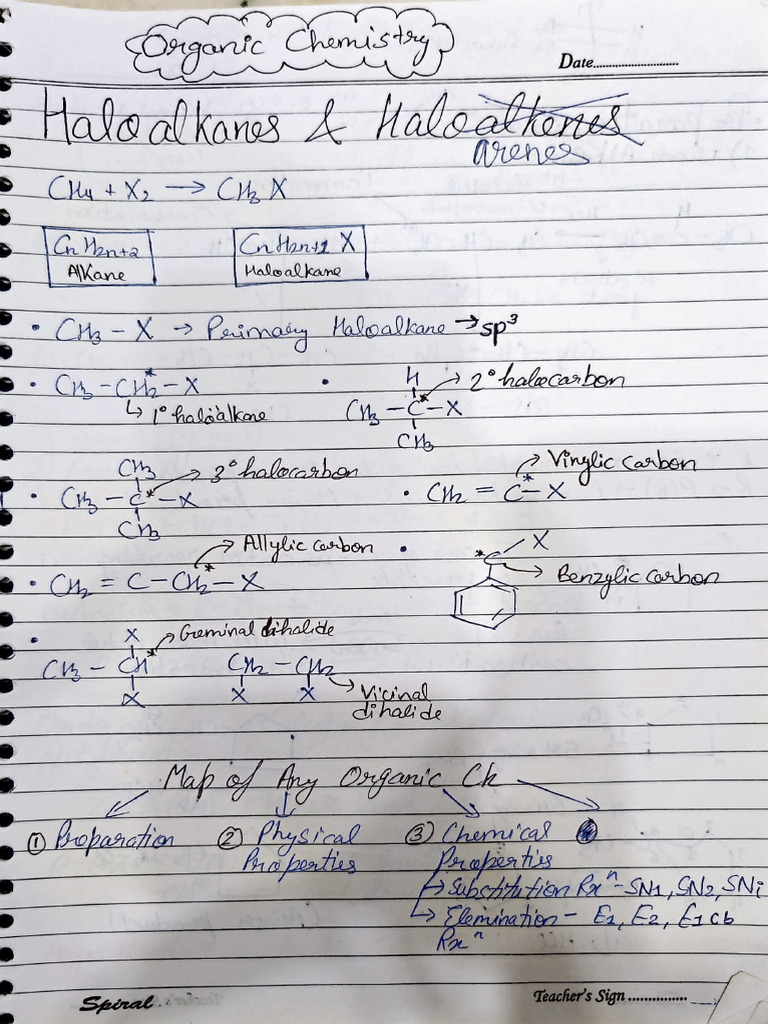 Organic Chemistry
Date
Haloalkanes & Haloalkenes
arenes
CH4 + X2 → CH3 X
CnH2n+2 CnH2n+1 X
Alkane Haloalkane
• CH3 – X → Primary Haloalkane → sp³
• CH3 – CH2* – X
↳ 1° haloalkane
• H → 2° halocarbon
CH3 – C* – X
CH3
CH3 → 3° halocarbon
• CH3 – C* – X
CH3
→ Vinylic carbon
• CH2 = C* – X
→ Allylic carbon
• CH2 = C – CH2* – X
• X
* C → Benzylic carbon
• X → Geminal dihalide
CH3 – CH*
X
CH2 – CH2
X X → Vicinal
dihalide
Map of Any Organic Ch
① Preparation ② Physical ③ Chemical
Properties Properties
↳ Substitution Rxⁿ – SN1, SN2, SNi
↳ Elemination – E1, E2, E1cb
Rxⁿ
Spiral
Teacher's Sign